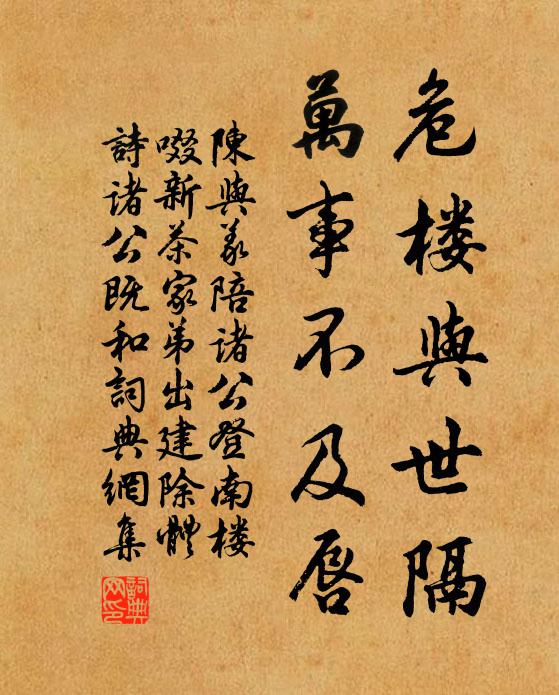 危楼與世隔
萬事不及唇
陳與义陪诸公登南楼
啜新茶家弟出建除體
詩诸公既和詞典網集
詞典網印